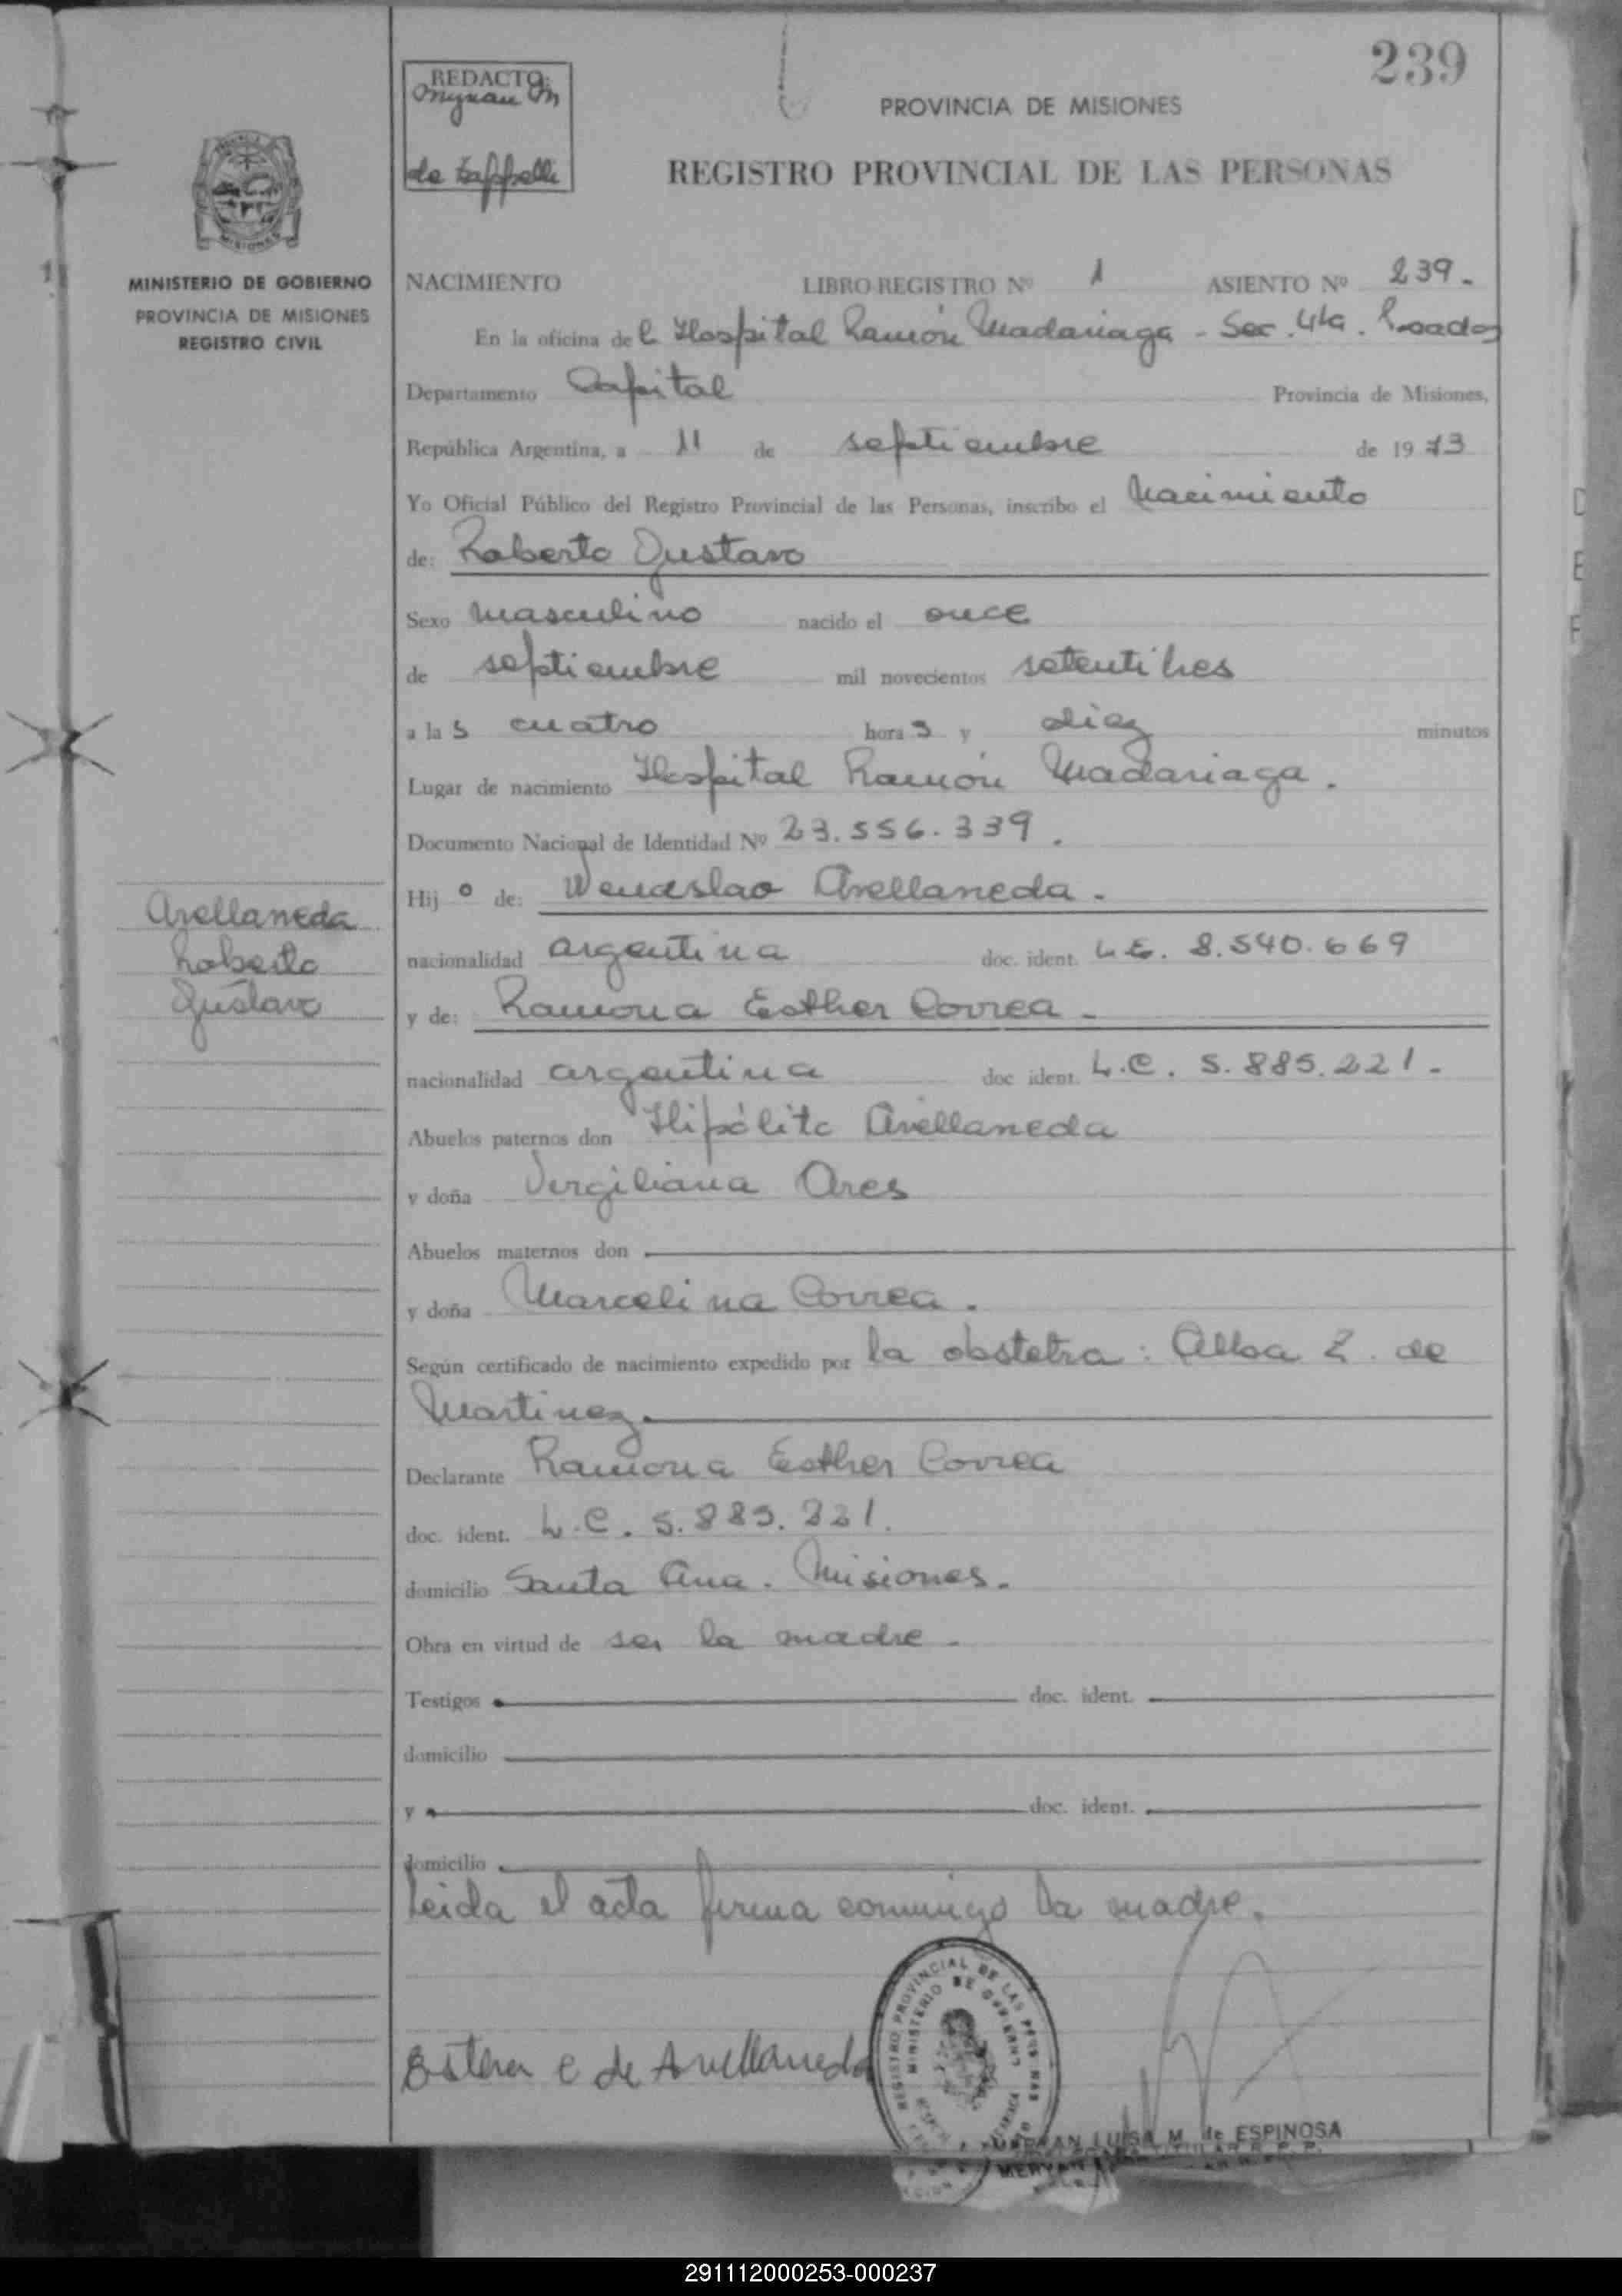 239
REDACTO:
de Zappelli
PROVINCIA DE MISIONES
REGISTRO PROVINCIAL DE LAS PERSONAS
MISIONES
MINISTERIO DE GOBIERNO
PROVINCIA DE MISIONES
REGISTRO CIVIL
NACIMIENTO LIBRO REGISTRO Nº 1 ASIENTO Nº 239.-
En la oficina del Hospital Ramón Madariaga - Sec. 4ta. Posadas
Departamento Capital Provincia de Misiones,
República Argentina, a 11 de septiembre de 1973
Yo Oficial Público del Registro Provincial de las Personas, inscribo el Nacimiento
de: Roberto Gustavo
Sexo masculino nacido el once
de septiembre mil novecientos setentitres
a las cuatro horas y diez minutos
Lugar de nacimiento Hospital Ramón Madariaga.
Documento Nacional de Identidad Nº 23.556.339.
Hijo de: Wenceslao Avellaneda.-
Avellaneda
Roberto
Gustavo
nacionalidad argentina doc. ident. L.E. 8.540.669
y de: Ramona Esther Correa -
nacionalidad argentina doc ident. L.C. 5.885.221.-
Abuelos paternos don Hipólito Avellaneda
y doña Vergiliana Ares
Abuelos maternos don
y doña Marcelina Correa.
Según certificado de nacimiento expedido por la obstetra: Alba Z. de
Martinez.
Declarante Ramona Esther Correa
doc. ident. L.C. 5.885.221.
domicilio Santa Ana. Misiones.
Obra en virtud de ser la madre.
Testigos doc. ident.
domicilio
y doc. ident.
domicilio
Leida el acta firma conmigo la madre.
REGISTRO PROVINCIAL DE LAS PERSONAS
MINISTERIO DE GOBIERNO
Ester C de Avellaneda
LUISA M. de ESPINOSA
291112000253-000237